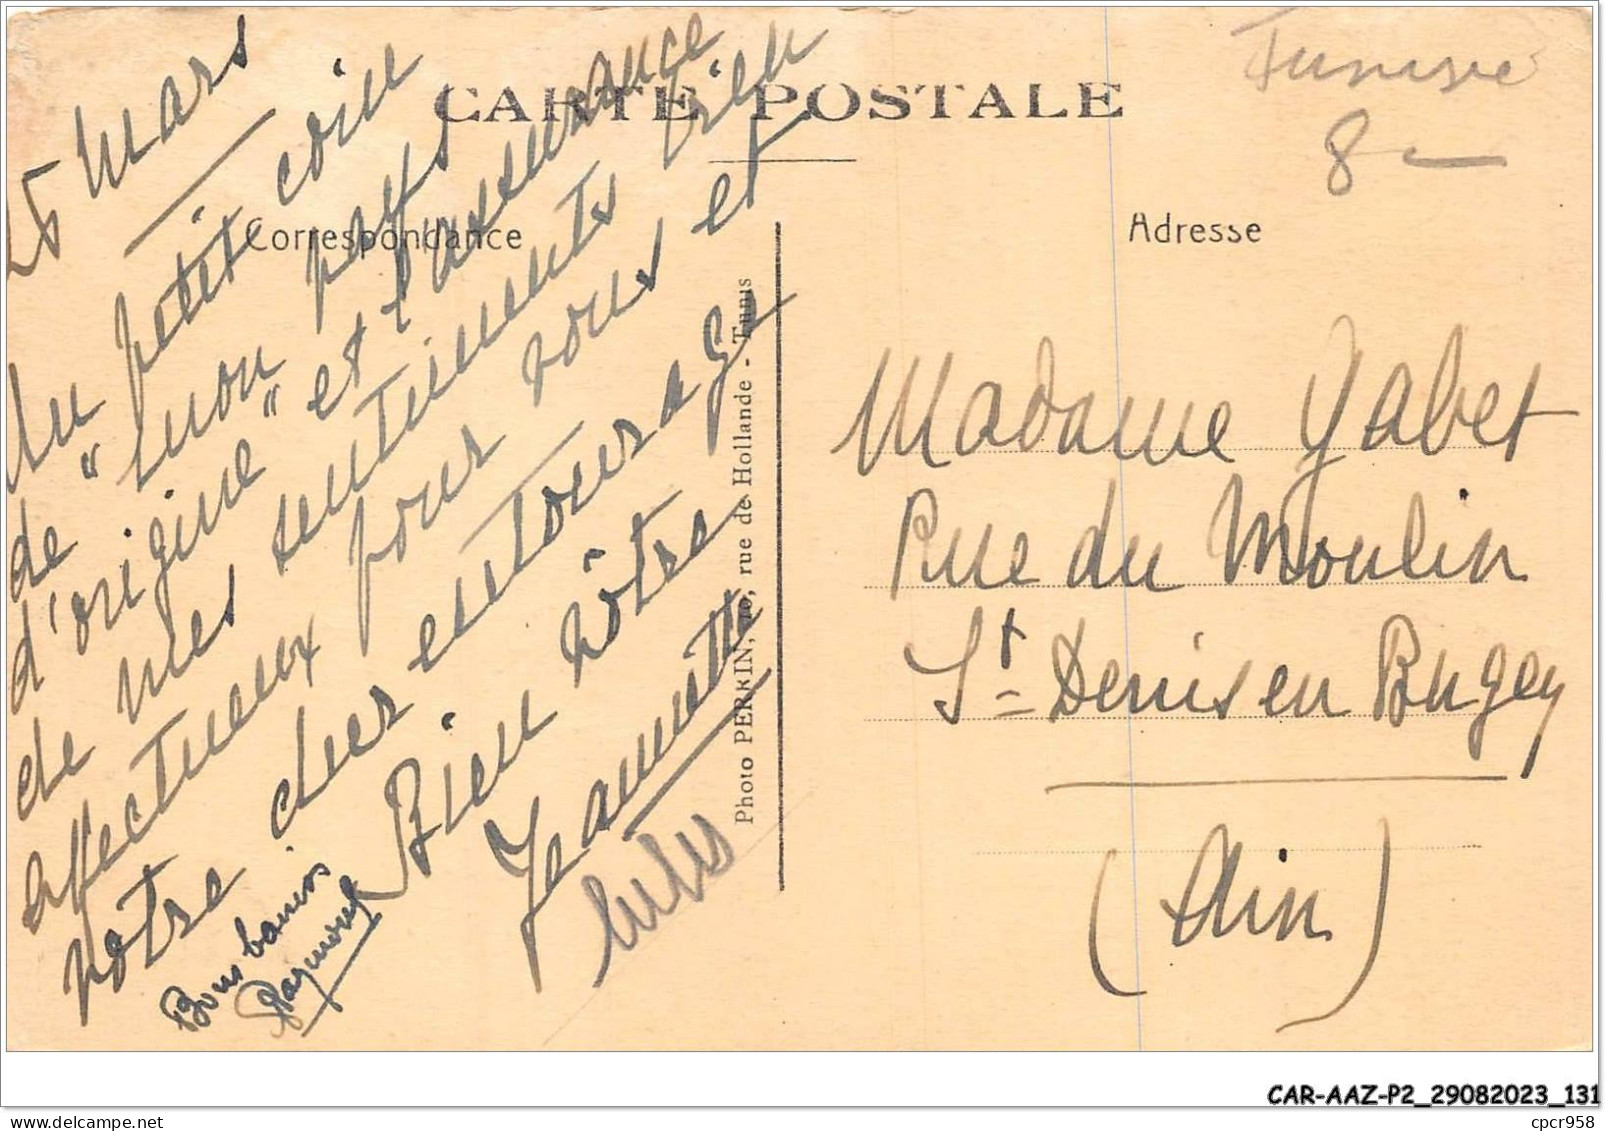 CARTE POSTALE
Tunisie
8 —
Correspondance
Adresse
25 Mars
Du petit coin
de " mon pays
d'origine " et l'assurance
de mes sentiments bien
affectueux pour vous et
votre cher entourage
Bien vôtre
Jeannette
Bons baisers
Raymond
Photo PERRIN, 10, rue de Hollande - Tunis
Madame Yabet
Rue du Moulin
St- Denis en Bugey
(Ain)
CAR-AAZ-P2_29082023_131
cpcr958